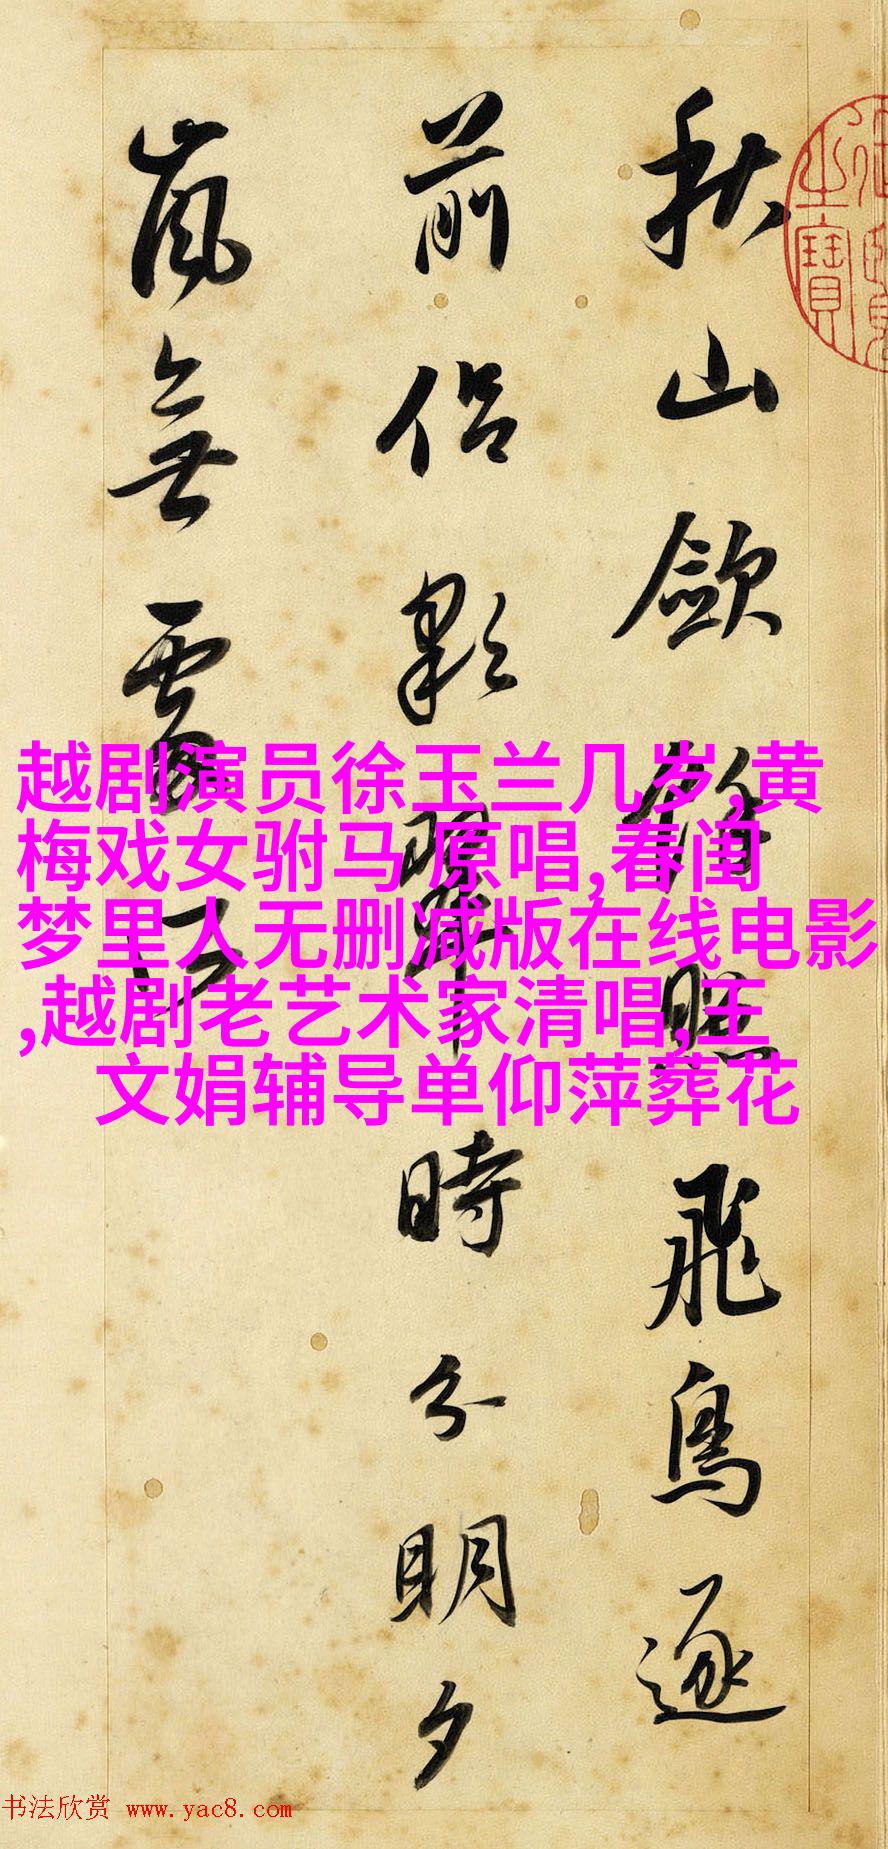 秋山歛餘照飛鳥逐
前侶彩翠時分明夕
嵐無處所
之寶
越剧演员徐玉兰几岁,黄
梅戏女驸马 原唱,春闺
梦里人无删减版在线电影
,越剧老艺术家清唱,王
文娟辅导单仰萍葬花
书法欣赏 www.yac8.com